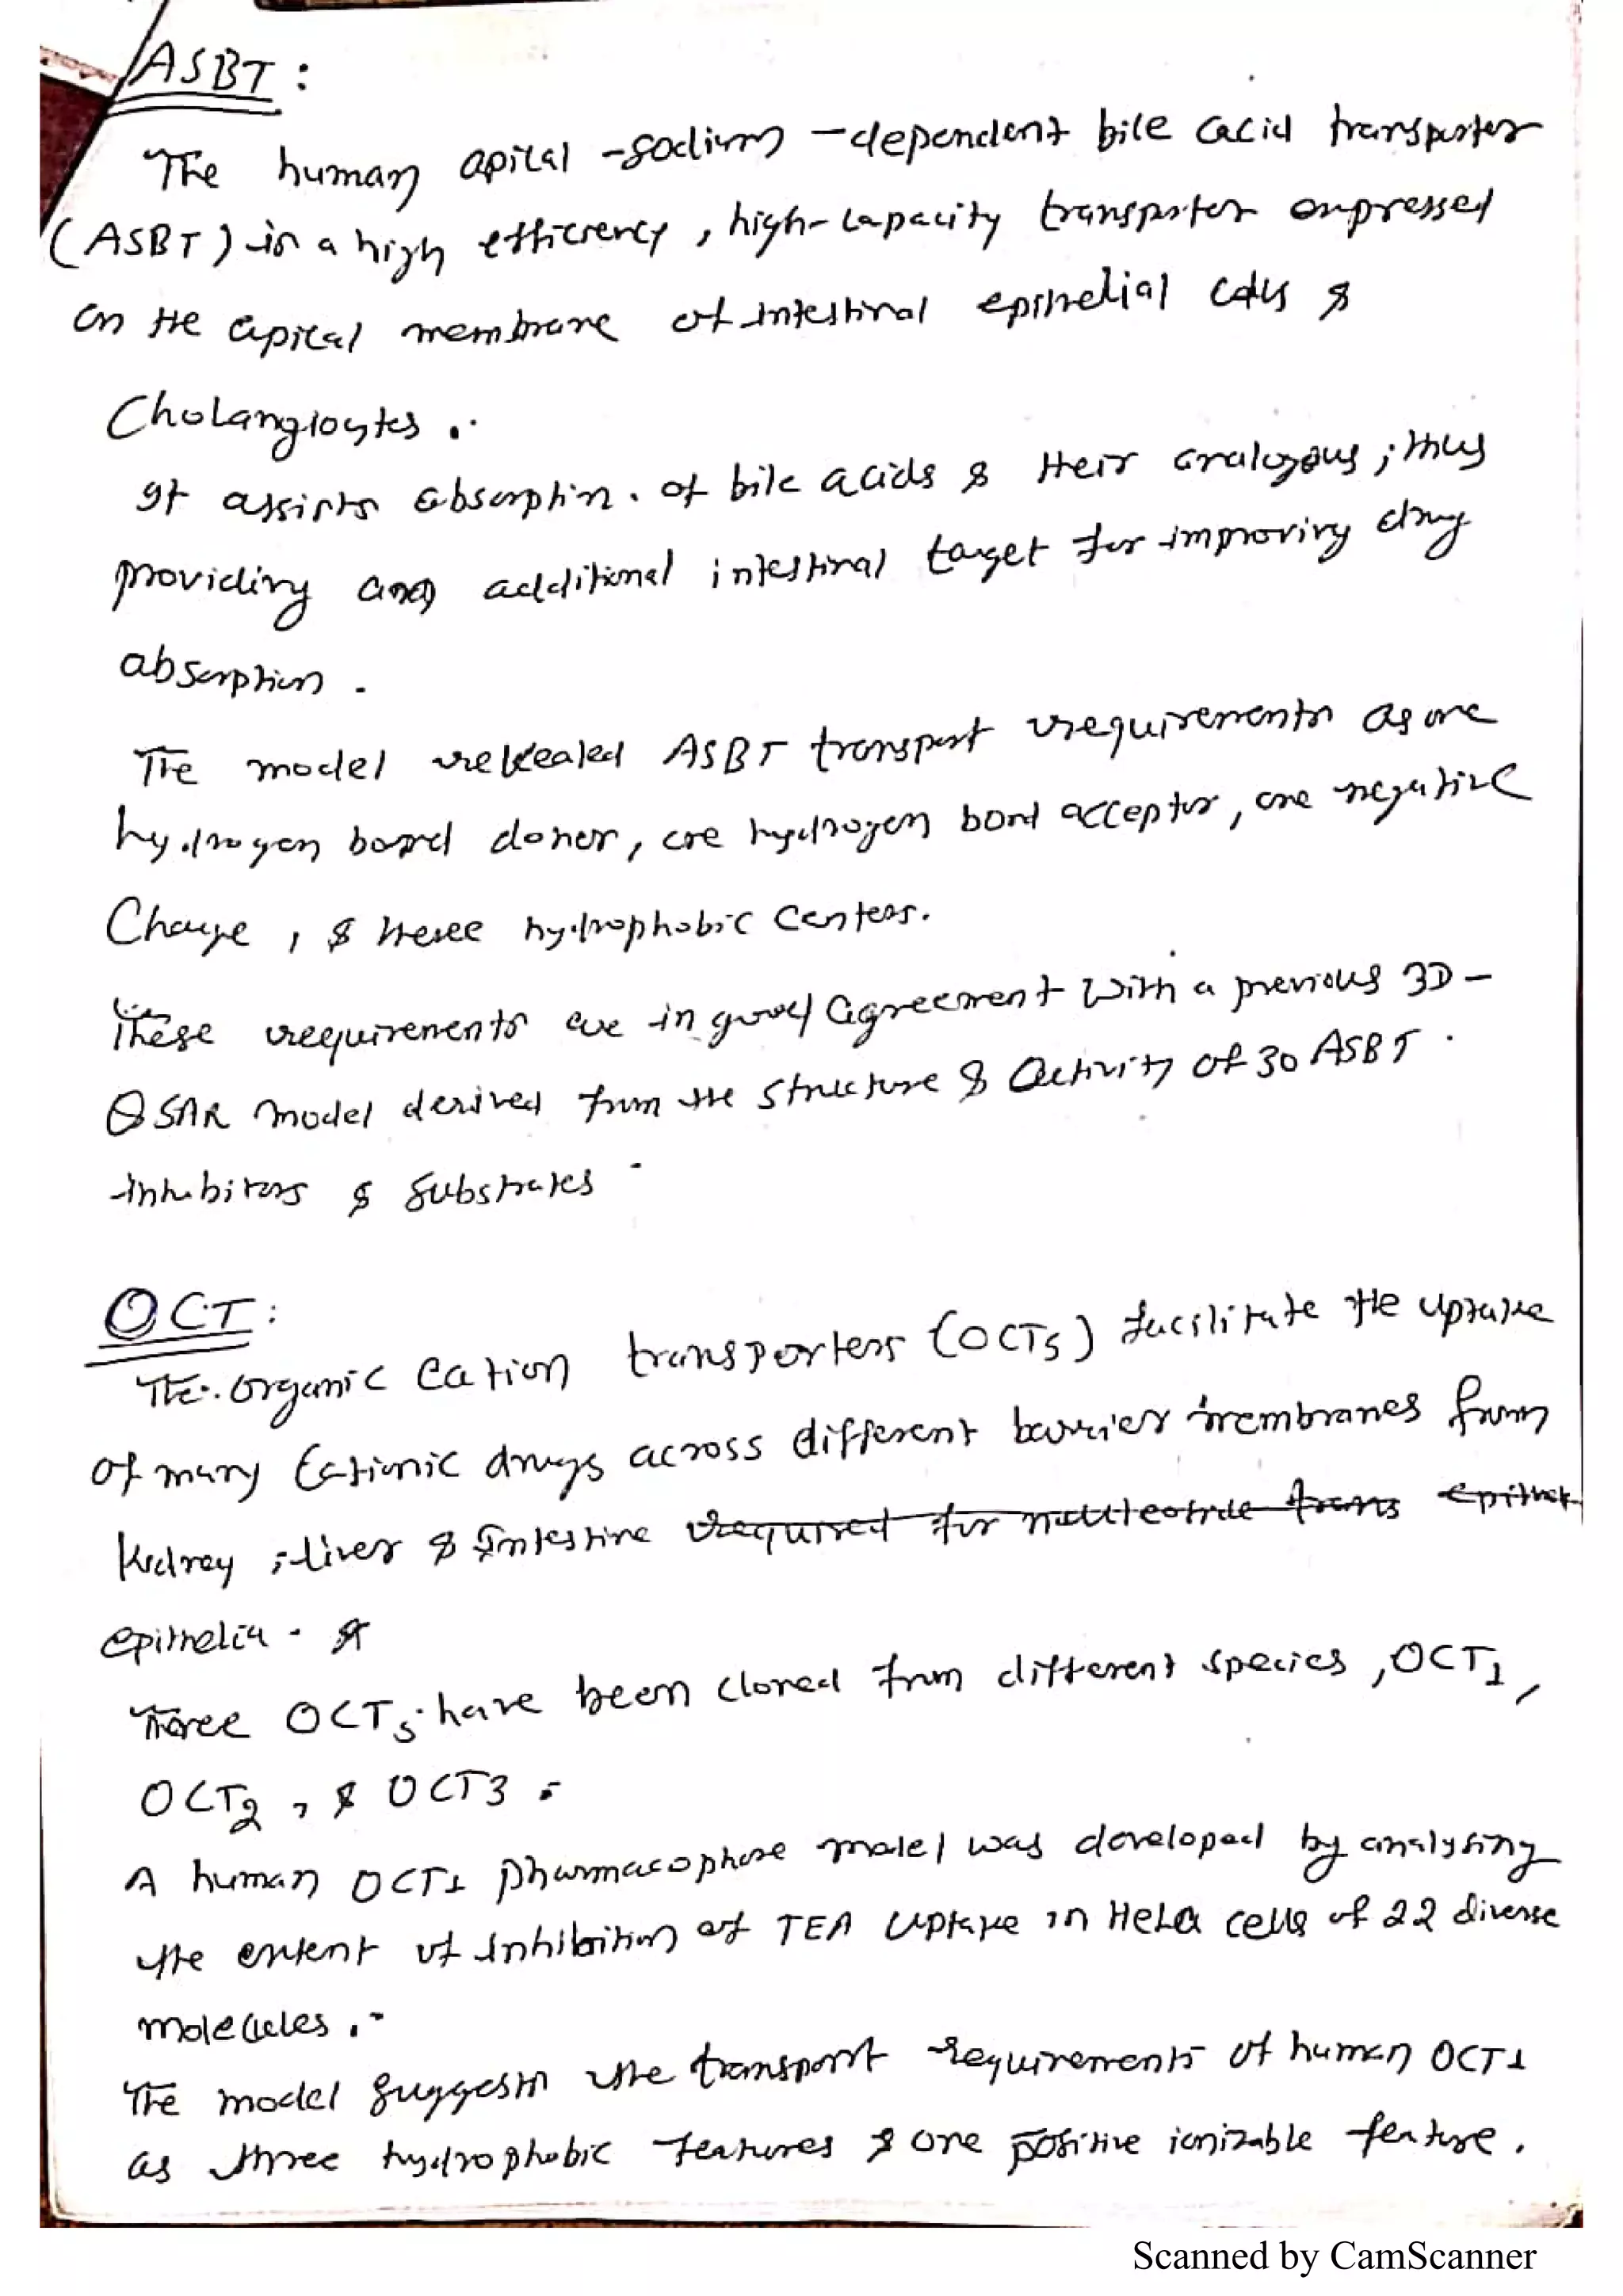 ASBT :
The human apical -sodium -dependent bile acid transporter
(ASBT) is a high efficiency , high-capacity transporter expressed
on the apical membrane of intestinal epithelial cells &
Cholangiocytes .
It assists absorption . of bile acids & their analogous ; thus
providing an additional intestinal target for improving drug
absorption .
The model revealed ASBT transport requirements as one
hydrogen bond donor, one hydrogen bond acceptor, one negative
Charge , & three hydrophobic Centers.
These requirements are in good agreement with a previous 3D-
QSAR model derived from the structure & activity of 30 ASBT
inhibitors & substrates
OCT :
The organic cation transporters (OCTs) facilitate the uptake
of many cationic drugs across different barrier membranes from
kidney , liver & intestine required for nucleotide trans epithel
epithelia .
Three OCTs have been cloned from different species , OCT1 ,
OCT2 , & OCT3 .
A human OCT1 pharmacophore model was developed by analysing
the extent of inhibition of TEA uptake in HeLa cells of 22 diverse
molecules .
The model suggests the transport requirements of human OCT1
as three hydrophobic features & one positive ionizable feature .
Scanned by CamScanner